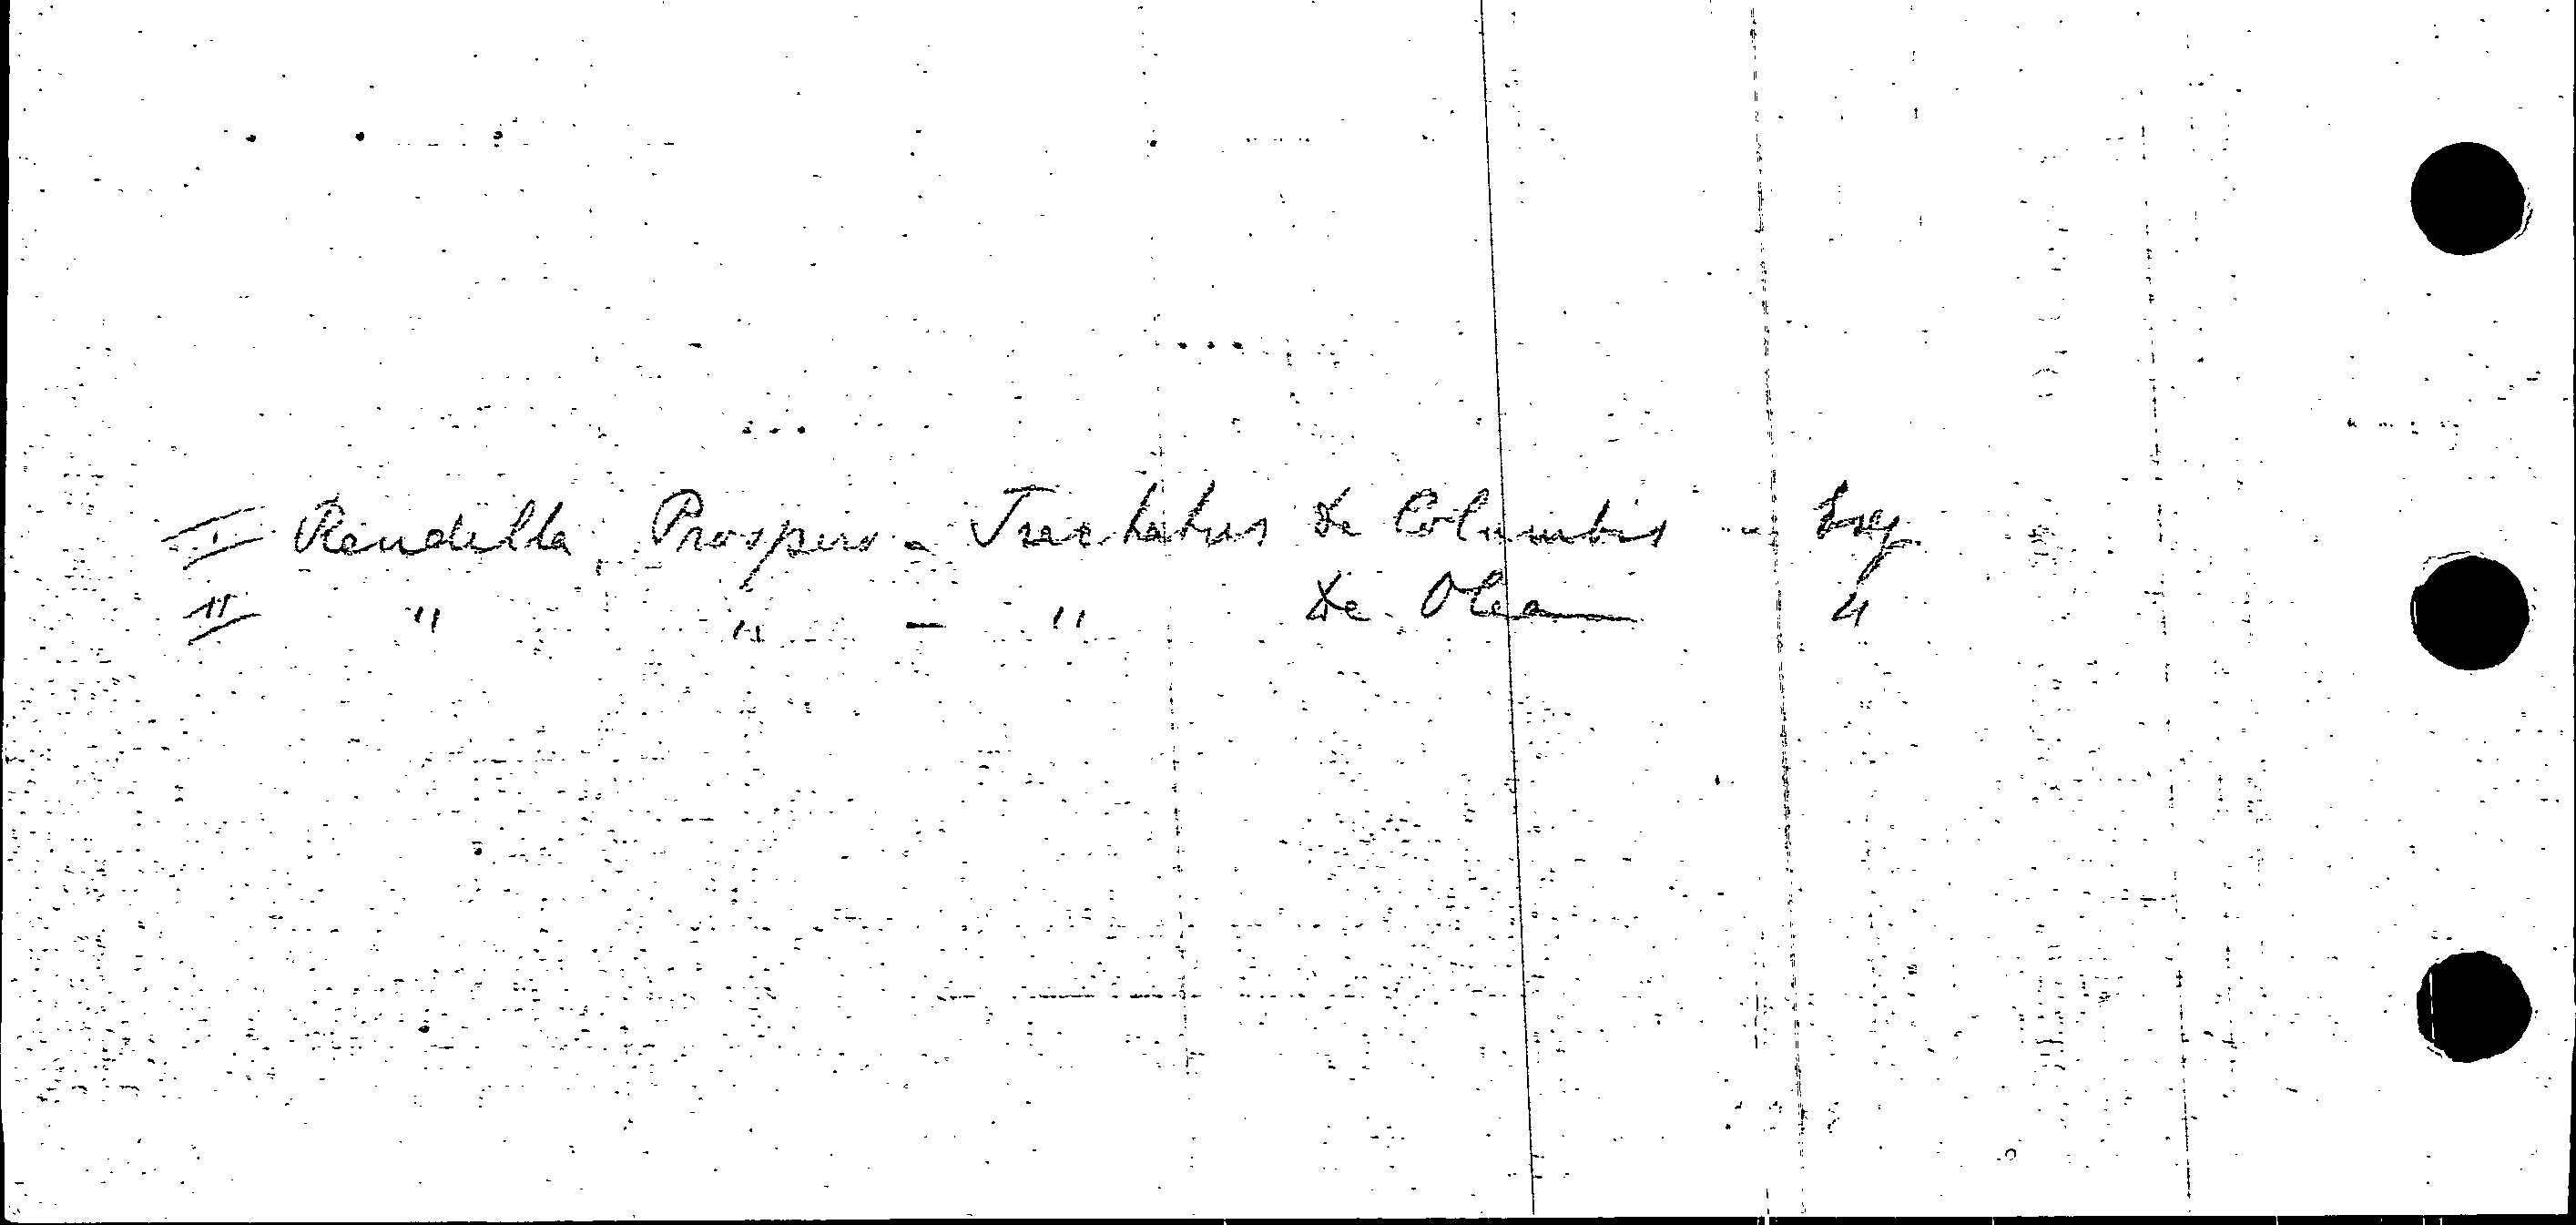 I Rendella, Prospero - Tractatus de Columbis -
II " " - " de Olea "